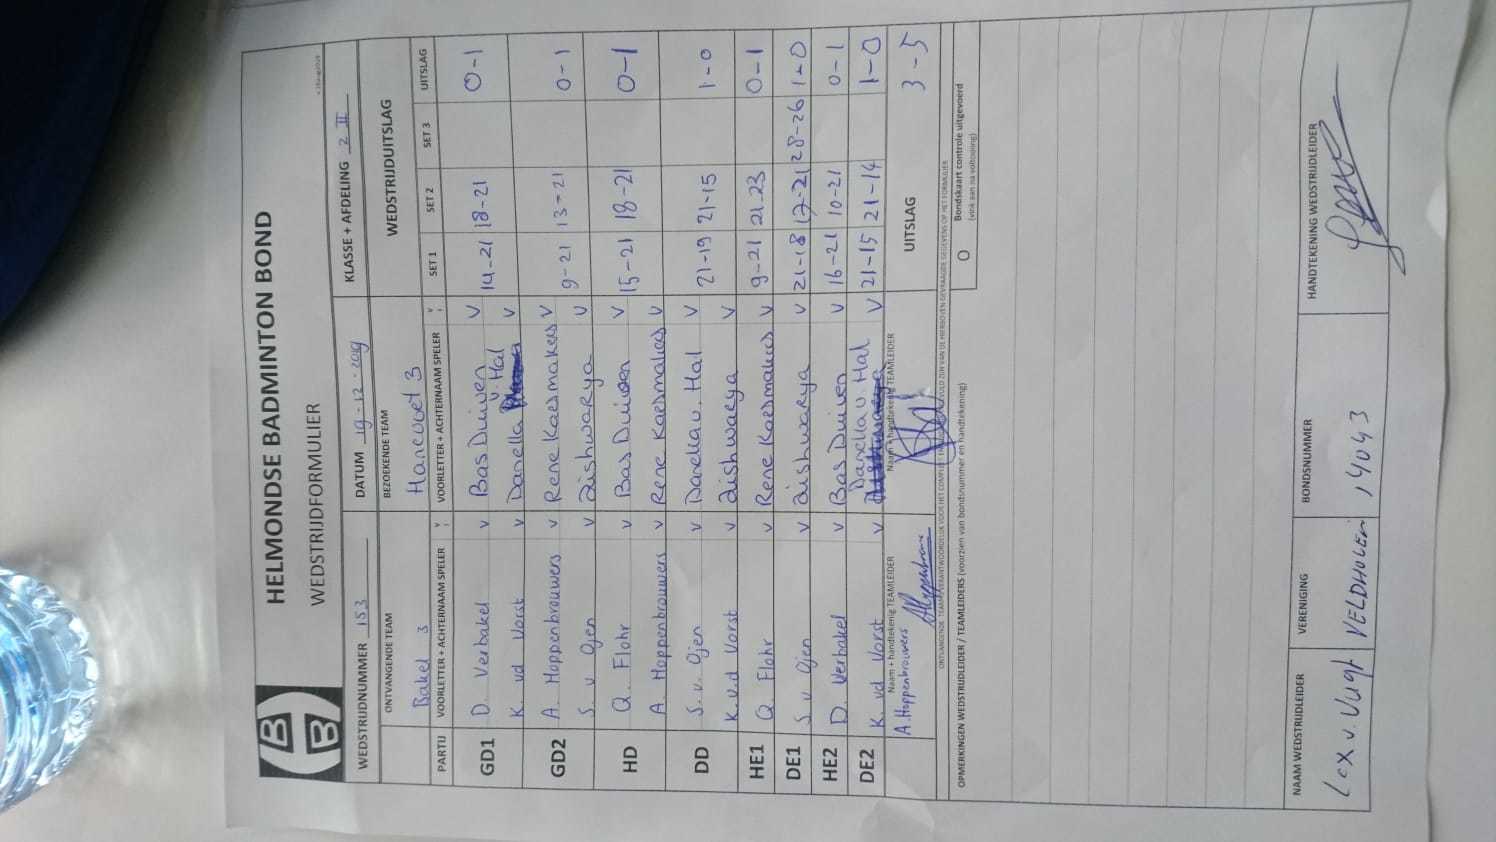 HELMONDSE BADMINTON BOND
WEDSTRIJDFORMULIER
WEDSTRIJDNUMMER 153 DATUM 19-12-2019 KLASSE + AFDELING 2 II
ONTVANGENDE TEAM BEZOEKENDE TEAM WEDSTRIJDUITSLAG
Bakel 3 Hancuoet 3
PARTIJ VOORLETTER + ACHTERNAAM SPELER V VOORLETTER + ACHTERNAAM SPELER V SET 1 SET 2 SET 3 UITSLAG
GD1 D. Verbakel v Bas Duiven V 14-21 18-21 0-1
K vd Vorst v Danella v. Hal V
GD2 A. Hoppenbrouwers v Rene Kaesmakers V 9-21 13-21 0-1
S. v Ojen v Aishwarya V
HD Q. Flohr v Bas Duiven V 15-21 18-21 0-1
A. Hoppenbrouwers v Rene Kaesmakers V
DD S. v. Ojen v Danella v. Hal V 21-19 21-15 1-0
K. v.d Vorst v Aishwarya V
HE1 Q Flohr v Rene Kaesmakers V 9-21 21-23 0-1
DE1 S v Ojen v Aishwarya V 21-18 17-21 28-26 1-0
HE2 D. Verbakel v Bas Duiven V 16-21 10-21 0-1
DE2 K. vd Vorst v Danella v. Hal V 21-15 21-14 1-0
Naam + handtekenig TEAMLEIDER Naam + handtekenig TEAMLEIDER UITSLAG 3-5
A. Hoppenbrouwers
O Bondskaart controle uitgevoerd
(vink aan na voltooiing)
OPMERKINGEN WEDSTRIJDLEIDER / TEAMLEIDERS (voorzien van bondsnummer en handtekening)
NAAM WEDSTRIJDLEIDER VERENIGING BONDSNUMMER HANDTEKENING WEDSTRIJDLEIDER
Lex v. Vugt VELDHOVEN 14043